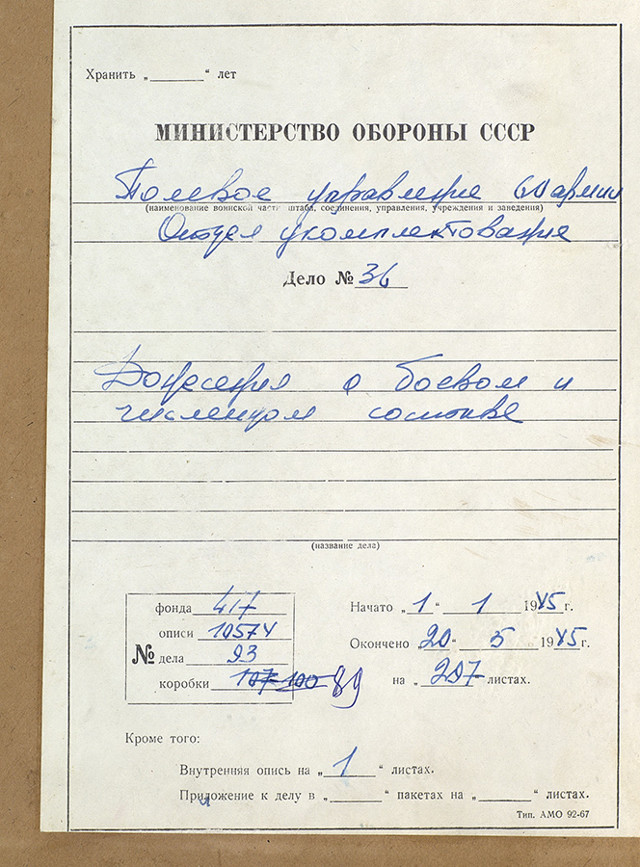 Хранить „______“ лет
МИНИСТЕРСТВО ОБОРОНЫ СССР
Полевое управление 60 армии
(наименование воинской части штаба, соединения, управления, учреждения и заведения)
Отдел укомплектования
Дело № 36
Донесения о боевом и
численном составе
(название дела)
фонда 417
описи 10574
№ дела 93
коробки 107 100 89
Начато „1“ 1 1945 г.
Окончено 20“ 5 1945 г.
на „207 листах.
Кроме того:
Внутренняя опись на „1“ листах.
Приложение к делу в „______“ пакетах на „______“ листах.
Тип. АМО 92-67